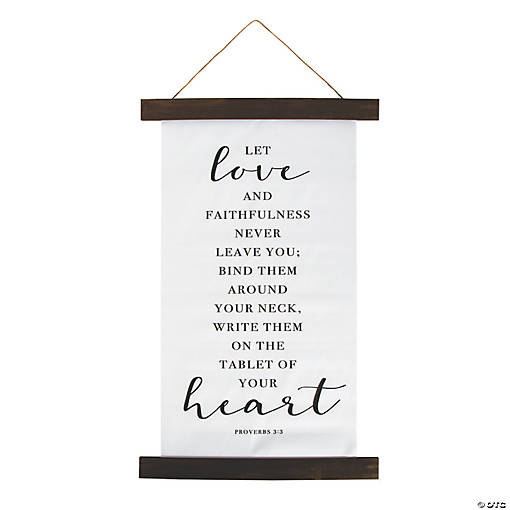 LET
love
AND
FAITHFULNESS
NEVER
LEAVE YOU;
BIND THEM
AROUND
YOUR NECK,
WRITE THEM
ON THE
TABLET OF
YOUR
heart
PROVERBS 3:3
© OTC